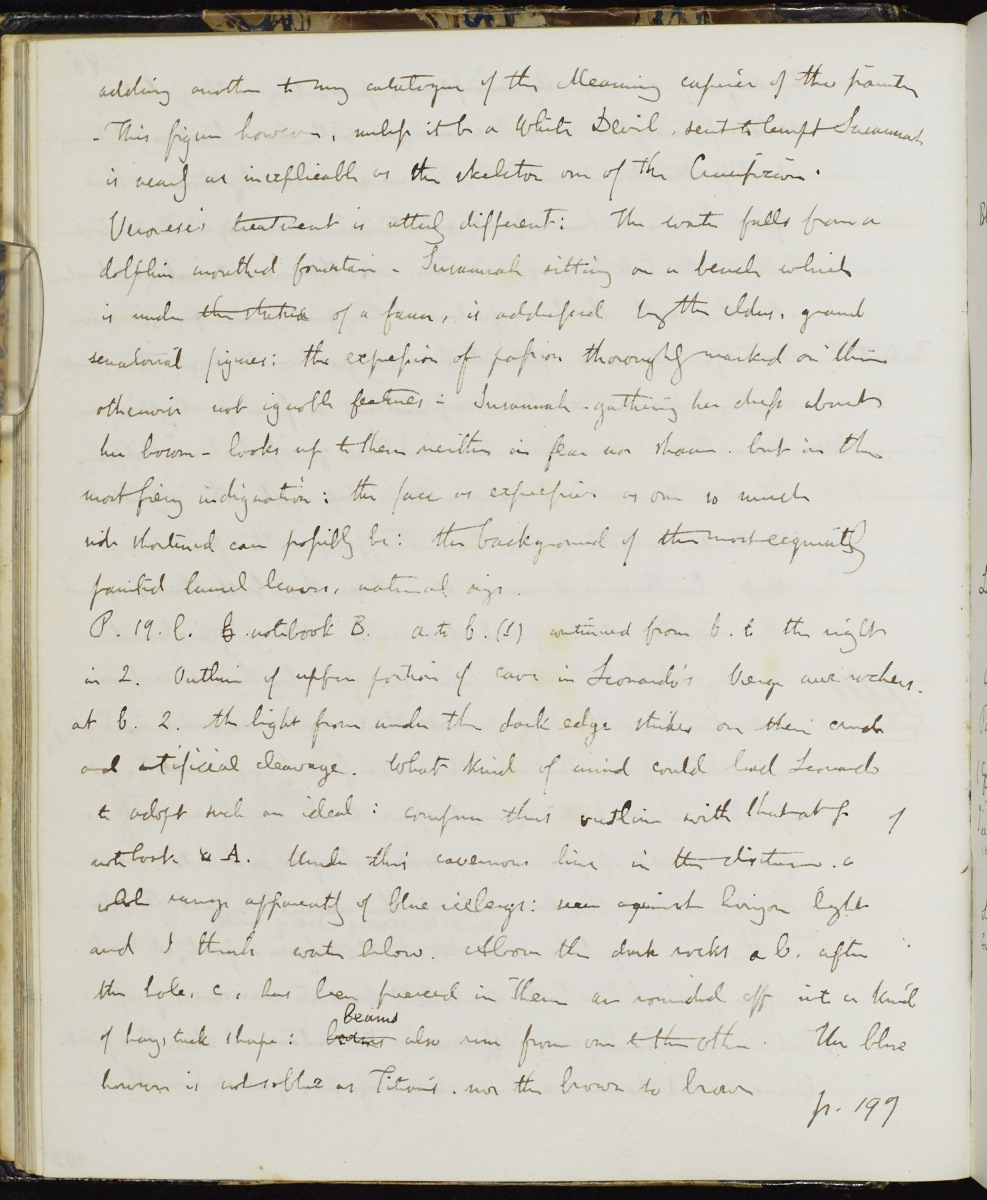 adding another to my catalogue of the Meaning caprices of the painter
- This figure however, unless it be a White Devil, sent to tempt Susannah
is nearly as inexplicable as the skeleton one of the Crucifixion.
Veronese's treatment is utterly different: The water falls from a
dolphin mouthed fountain - Susannah sitting on a bench which
is under the statue of a faun, is addressed by the elders, grand
senatorial figures: the expression of passion thoroughly marked on their
otherwise not ignoble features: Susannah - gathering her dress about
her bosom - looks up to them neither in fear nor shame. but in the
most fiery indignation: the face as expressive as one so much
side shortened can possibly be: the background of the most exquisitely
painted laurel leaves, natural size.
P. 19. l. 6. notebook B. a. to b. (1) continued from b. to the right
in 2. Outline of upper portion of cave in Leonardo's Vierge aux rochers.
at b. 2. the light from under the dark edge strikes on their crude
and artificial cleavage. What kind of mind could lead Leonardo
to adopt such an ideal: compare this outline with that at p of
notbook A. Under this cavernous line in the distance. a
whole range apparently of blue icebergs: seen against horizon light
and I think water below. Above the dark rocks a b. after
the hole, c, has been pierced in them are rounded off into a kind
of haystack shape: beams beams also run from one to the other. The blue
however is not so blue as Titian's. nor the brown so brown
p. 199